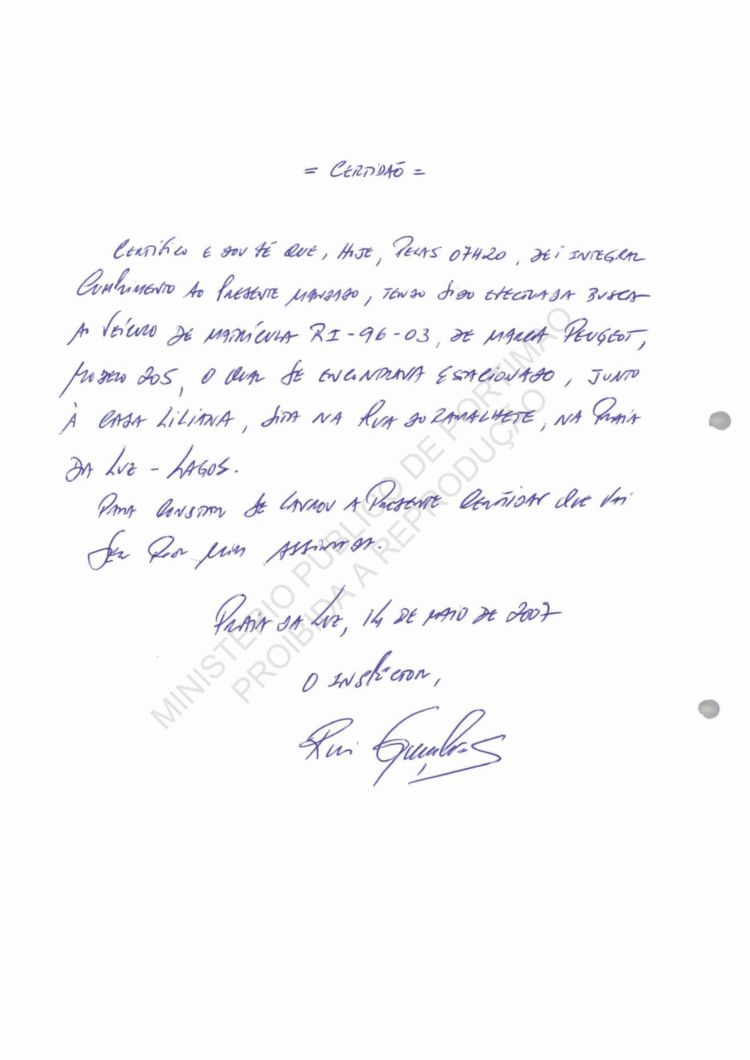 = CERTIDÃO =
CERTIFICO E DOU FÉ QUE, HOJE, PELAS 07H20, DEI INTEGRAL
CUMPRIMENTO AO PRESENTE MANDADO, TENDO SIDO EFECTUADA BUSCA
AO VEÍCULO DE MATRÍCULA RI-96-03, DE MARCA PEUGEOT,
MODELO 205, O QUAL SE ENCONTRAVA ESTACIONADO, JUNTO
À CASA LILIANA, SITA NA RUA DO RAMALHETE, NA PRAIA
DA LUZ - LAGOS.
PARA CONSTAR SE LAVROU A PRESENTE CERTIDÃO QUE VAI
SER POR MIM ASSINADA.
PRAIA DA LUZ, 14 DE MAIO DE 2007
O INSPECTOR,
Rui Gonçalves
MINISTÉRIO PÚBLICO DE PORTIMÃO
PROIBIDA A REPRODUÇÃO